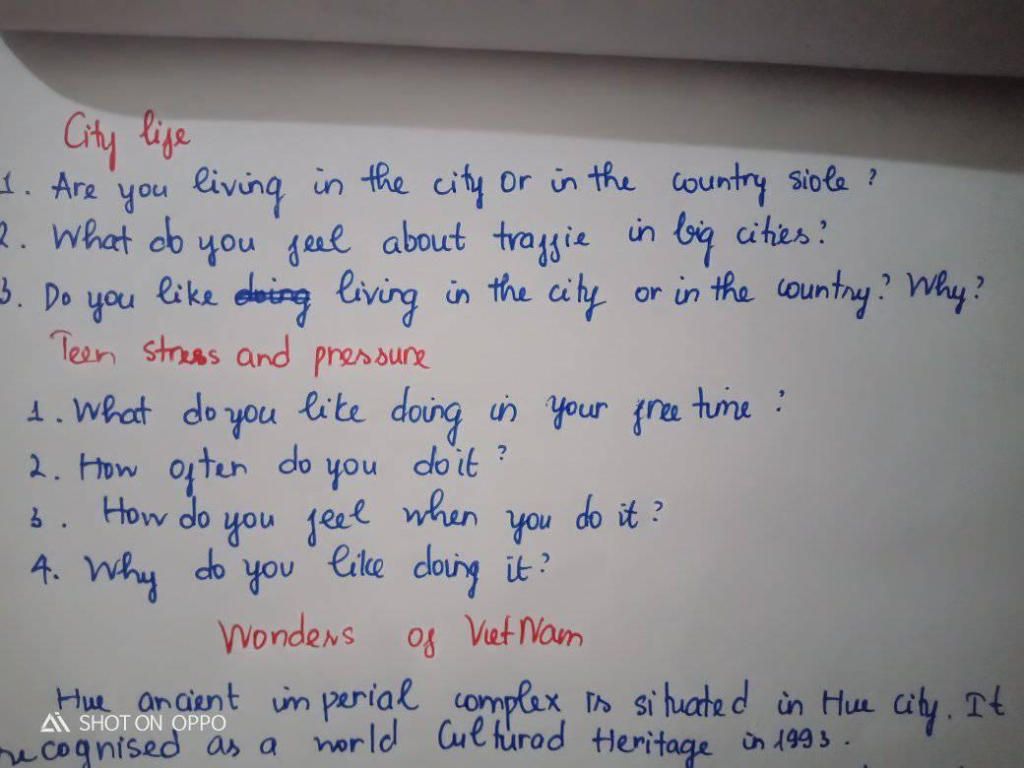 City life
1. Are you living in the city or in the country side?
2. What do you feel about traffic in big cities?
3. Do you like doing living in the city or in the country? Why?
Teen stress and pressure
1. What do you like doing in your free time?
2. How often do you do it?
3. How do you feel when you do it?
4. Why do you like doing it?
Wonders of Viet Nam
Hue ancient imperial complex is situated in Hue city. It
SHOT ON OPPO
recognised as a world Cultural Heritage in 1993.